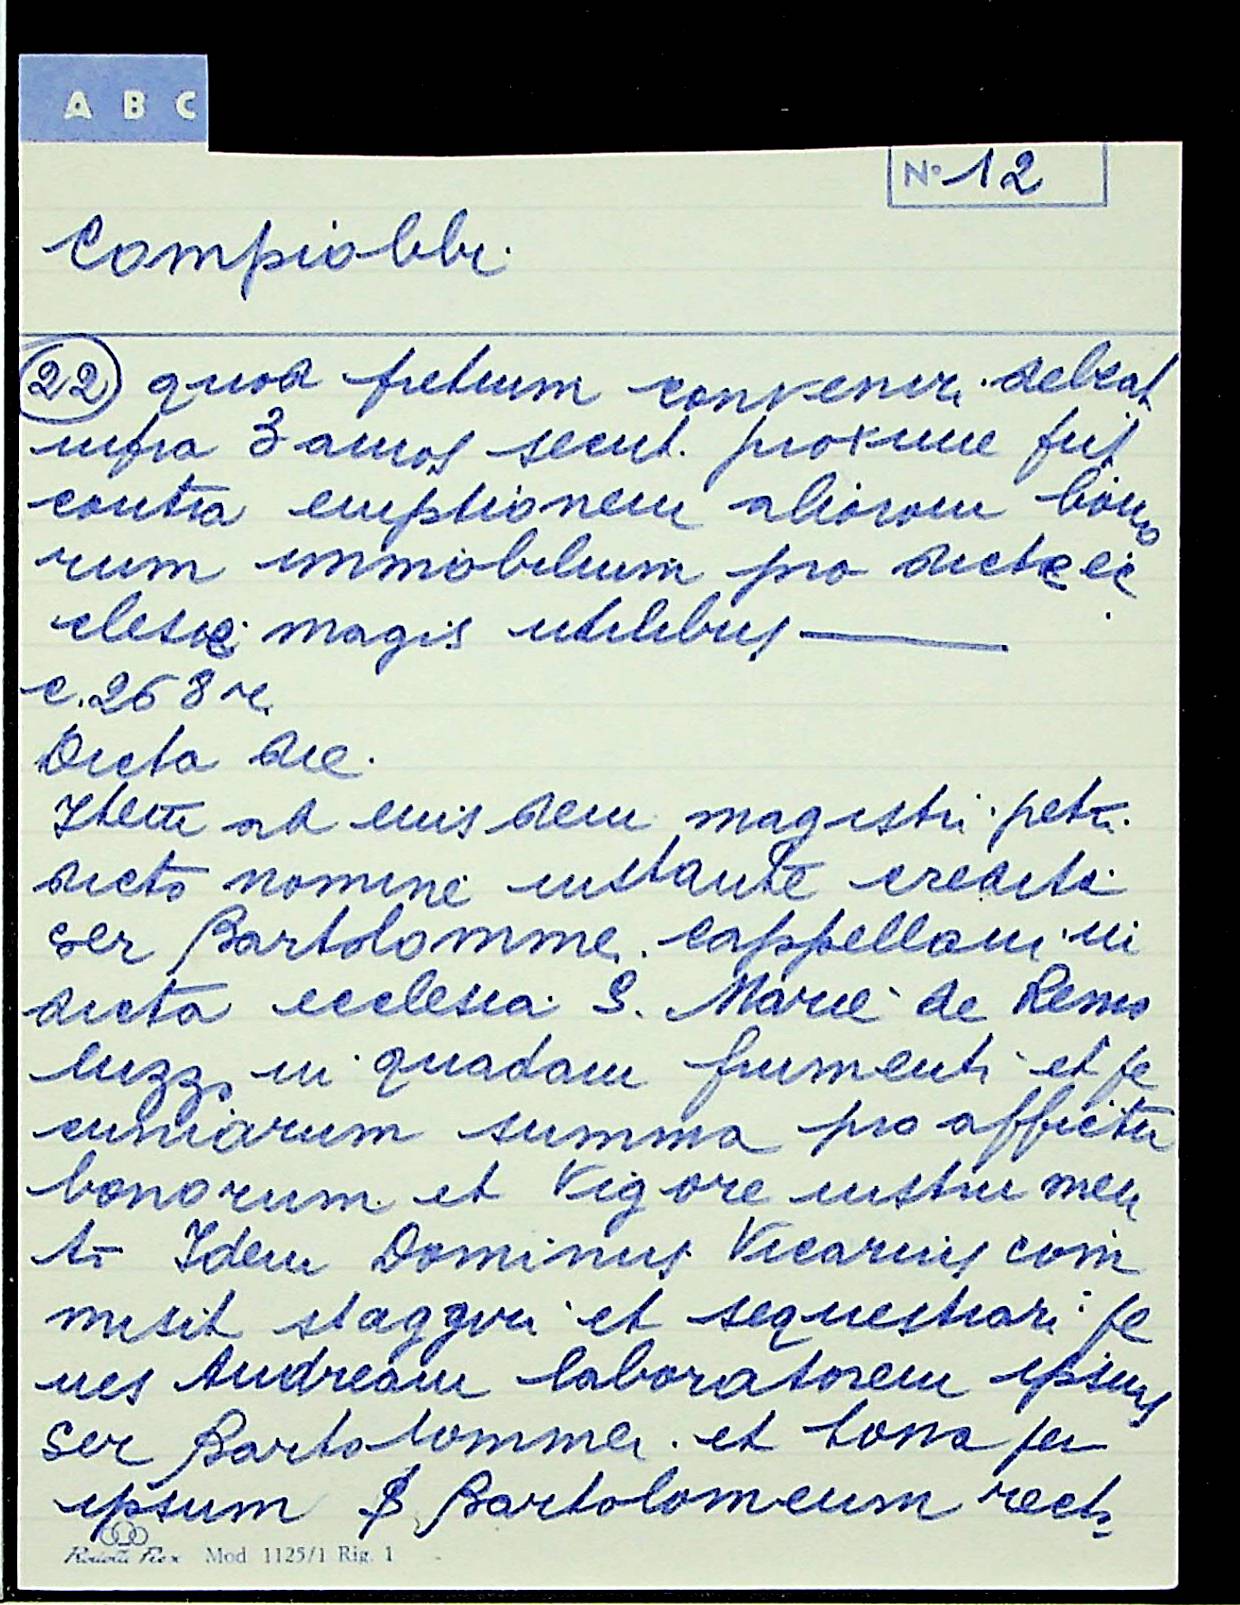 A B C
N° 12
Compiobbi.
22 quod pretium conveniri debeat
infra 3 annos secut. proxime fut
contra emptionem aliorom bono
rum immobilium pro dicte ec
clesie magis utilibus
c. 268 r.
Dicta die.
Item ad eius dem magistri petri
dicto nomine instante credito
ser Bartolommei cappellani in
dicta ecclesia S. Marie de Remo
luzzo in quadam frumenti et pe
cuniarum summa pro affictu
bonorum et vigore instrumen
ti Idem Dominus Vicarius com
misit staggiri et sequestrari pe
nes Andream laboratorem ipsius
ser Bartolommei et bona per
ipsum S Bartolomeum recta
Mod 1125/1 Rig. 1